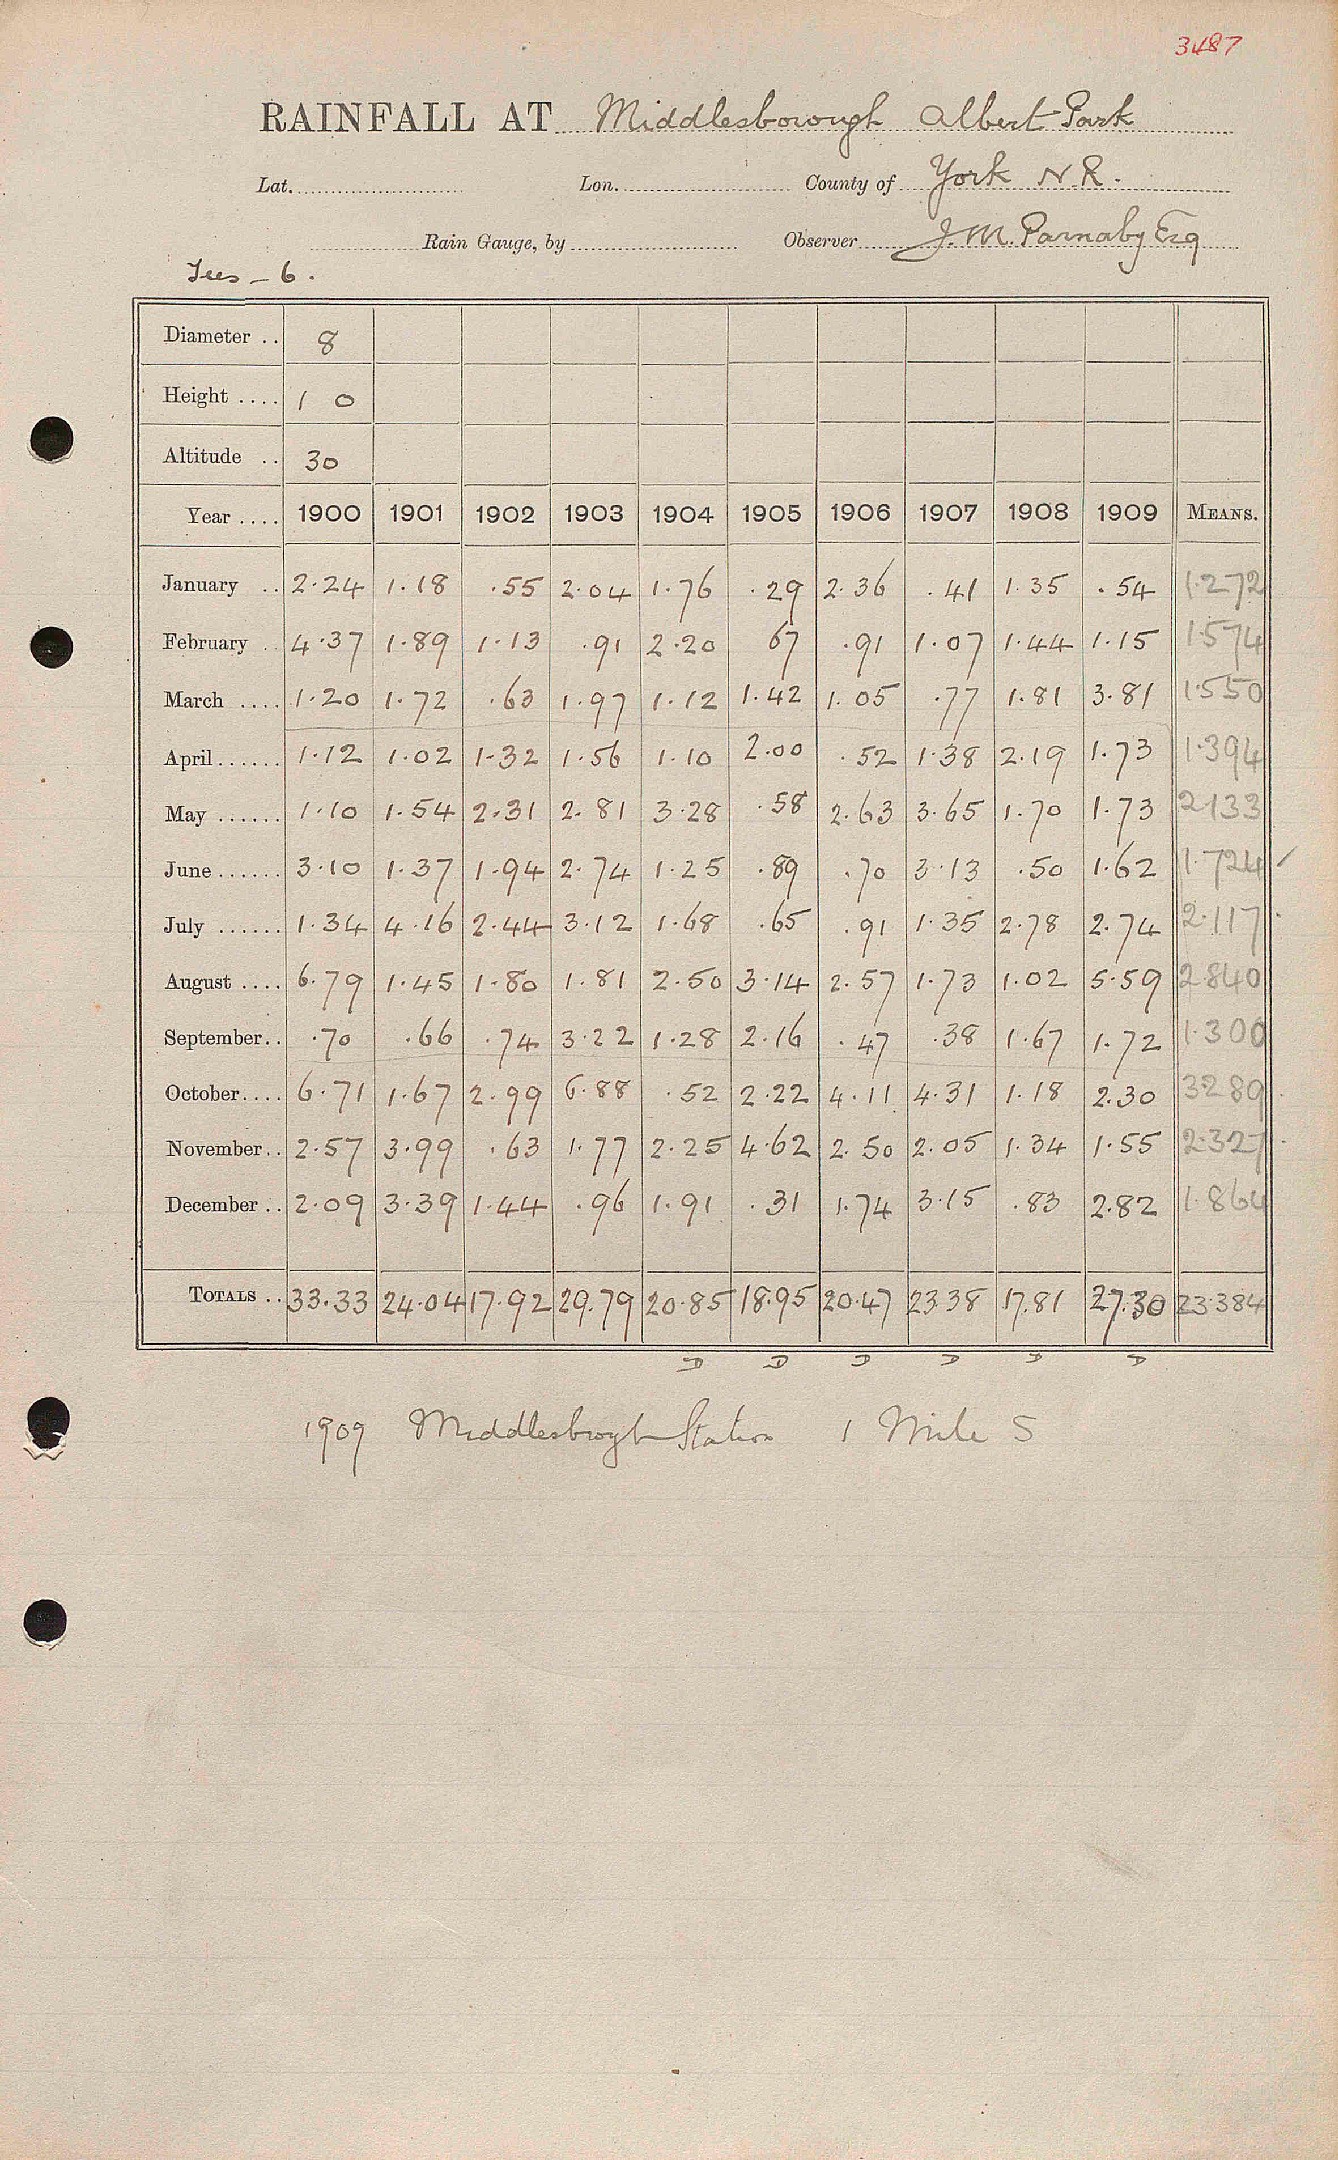 3487
RAINFALL AT Middlesborough Albert Park
Lat. Lon. County of York N.R.
Rain Gauge, by Observer J. M. Parnaby Esq
Tees - 6.
Diameter .. 8
Height .... 1 0
Altitude .. 30
Year .... 1900 1901 1902 1903 1904 1905 1906 1907 1908 1909 MEANS.
January .. 2.24 1.18 .55 2.04 1.76 .29 2.36 .41 1.35 .54 1.272
February .. 4.37 1.89 1.13 .91 2.20 67 .91 1.07 1.44 1.15 1.574
March .... 1.20 1.72 .63 1.97 1.12 1.42 1.05 .77 1.81 3.81 1.550
April ...... 1.12 1.02 1.32 1.56 1.10 2.00 .52 1.38 2.19 1.73 1.394
May ...... 1.10 1.54 2.31 2.81 3.28 .58 2.63 3.65 1.70 1.73 2.133
June ...... 3.10 1.37 1.94 2.74 1.25 .89 .70 3.13 .50 1.62 1.724
July ...... 1.34 4.16 2.44 3.12 1.68 .65 .91 1.35 2.78 2.74 2.117
August .... 6.79 1.45 1.80 1.81 2.50 3.14 2.57 1.73 1.02 5.59 2.840
September .. .70 .66 .74 3.22 1.28 2.16 .47 .38 1.67 1.72 1.300
October .... 6.71 1.67 2.99 6.88 .52 2.22 4.11 4.31 1.18 2.30 3.289
November .. 2.57 3.99 .63 1.77 2.25 4.62 2.50 2.05 1.34 1.55 2.327
December .. 2.09 3.39 1.44 .96 1.91 .31 1.74 3.15 .83 2.82 1.864
TOTALS .. 33.33 24.04 17.92 29.79 20.85 18.95 20.47 23.38 17.81 27.30 23.384
D D D D D D
1909 Middlesbrough Station 1 Mile S